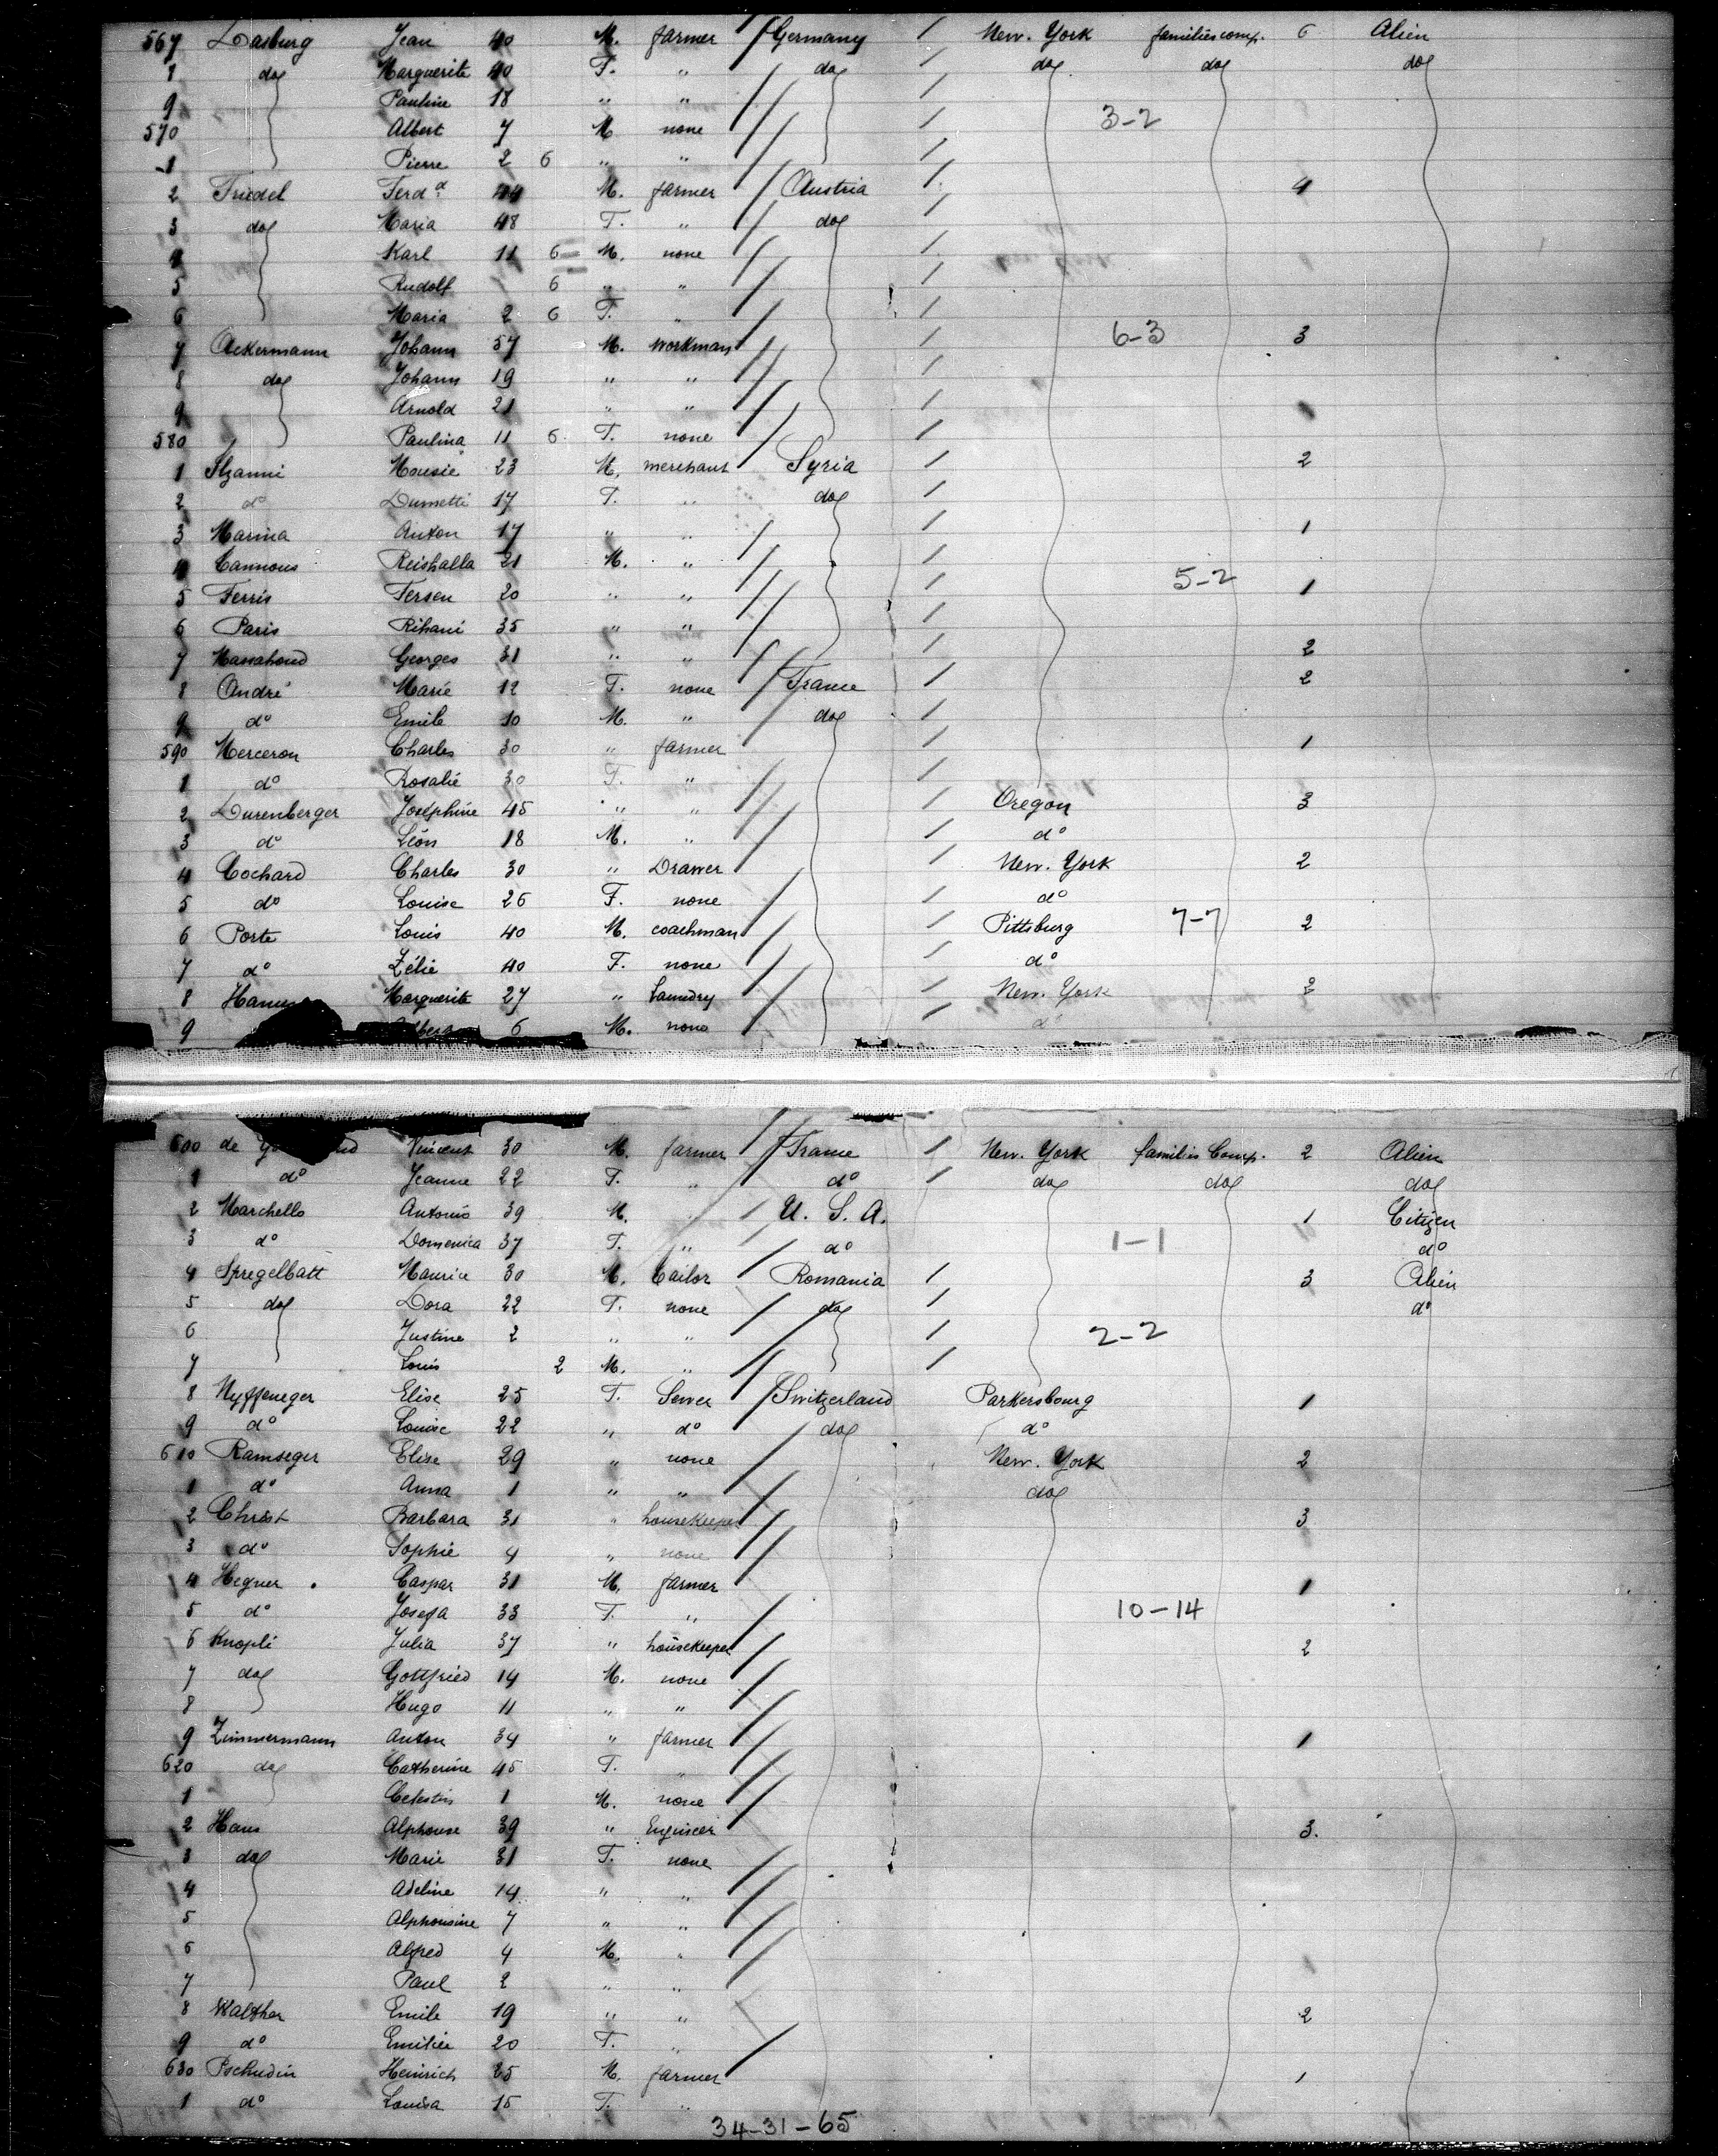 567 Dasburg Jean 40 M. farmer Germany / New. York families comp. 6 Alien
8 do Marguerite 40 F. " do / do do do
9 Pauline 18 " " /
570 Albert 7 M none / 3-2
1 Pierre 2 6 " " /
2 Friedel Ferdd 44 M. farmer Austria / 4
3 do Maria 48 F. " do /
4 Karl 11 6 M. none /
5 Rudolf 6 " " /
6 Maria 2 6 F. " /
7 Ackermann Johann 57 M. workman / 6-3 3
8 do Johann 19 " " /
9 Arnold 21 " " /
580 Paulina 11 6 F. none /
1 Mousie 23 M. merchant Syria / 2
2 do Dumetti 17 F. " do /
3 Marina Anton 17 " " / 1
4 Cannous Reishalla 21 M. " /
5 Ferris Fersen 20 " " / 5-2 1
6 Paris Rihani 35 " " /
7 Massahoud Georges 31 " " / 2
8 André Marie 12 F. none France / 2
9 do Emile 10 M. " do /
590 Merceron Charles 30 " farmer / 1
1 do Rosalie 30 F. " /
2 Durenberger Joséphine 45 " " / Oregon 3
3 do Léon 18 M. " / do
4 Cochard Charles 30 " Drawer / New. York 2
5 do Louise 26 F. none / do
6 Porte Louis 40 M. coachman / Pittsburg 7-7 2
7 do Zélie 40 F. none / do
8 Marguerite 27 " Laundry / New. York 2
9 6 M. none /
600 de Vincent 30 M. farmer France / New. York families Comp. 2 Alien
1 do Jeanne 22 F. " do / do do do
2 Marchello Antonio 39 M. " U. S. A. 1 Citizen
3 do Domenica 37 F. " do 1-1 do
4 Spregelbatt Maurice 30 M. Tailor Romania / 3 Alien
5 do Dora 22 F. none do / do
6 Justine 2 " " / 2-2
7 Louis 2 M. " /
8 Nyffeneger Elise 25 F. Sewer Switzerland Parkersbourg 1
9 do Louise 22 " do do do
610 Ramseger Elise 29 " none New. York 2
1 do Anna 1 " " do
2 Christ Barbara 31 " housekeeper 3
3 do Sophie 4 " none
4 Hegner Caspar 31 M. farmer 1
5 do Josefa 33 F. " 10-14
6 Knopli Julia 37 " housekeeper 2
7 do Gottfried 14 M. none
8 Hugo 11 " "
9 Zimmermann Anton 34 " farmer 1
620 do Catherine 45 F. "
1 Celestin 1 M. none
2 Haus Alphonse 39 " Engineer 3.
3 do Marie 31 F. none
4 Adeline 14 " "
5 Alphonsine 7 " "
6 Alfred 4 M. "
7 Paul 2 " "
8 Walther Emile 19 " " 2
9 do Emilie 20 F. "
630 Pschudin Heinrich 25 M. farmer 1
1 do Louisa 15 F. "
34-31-65